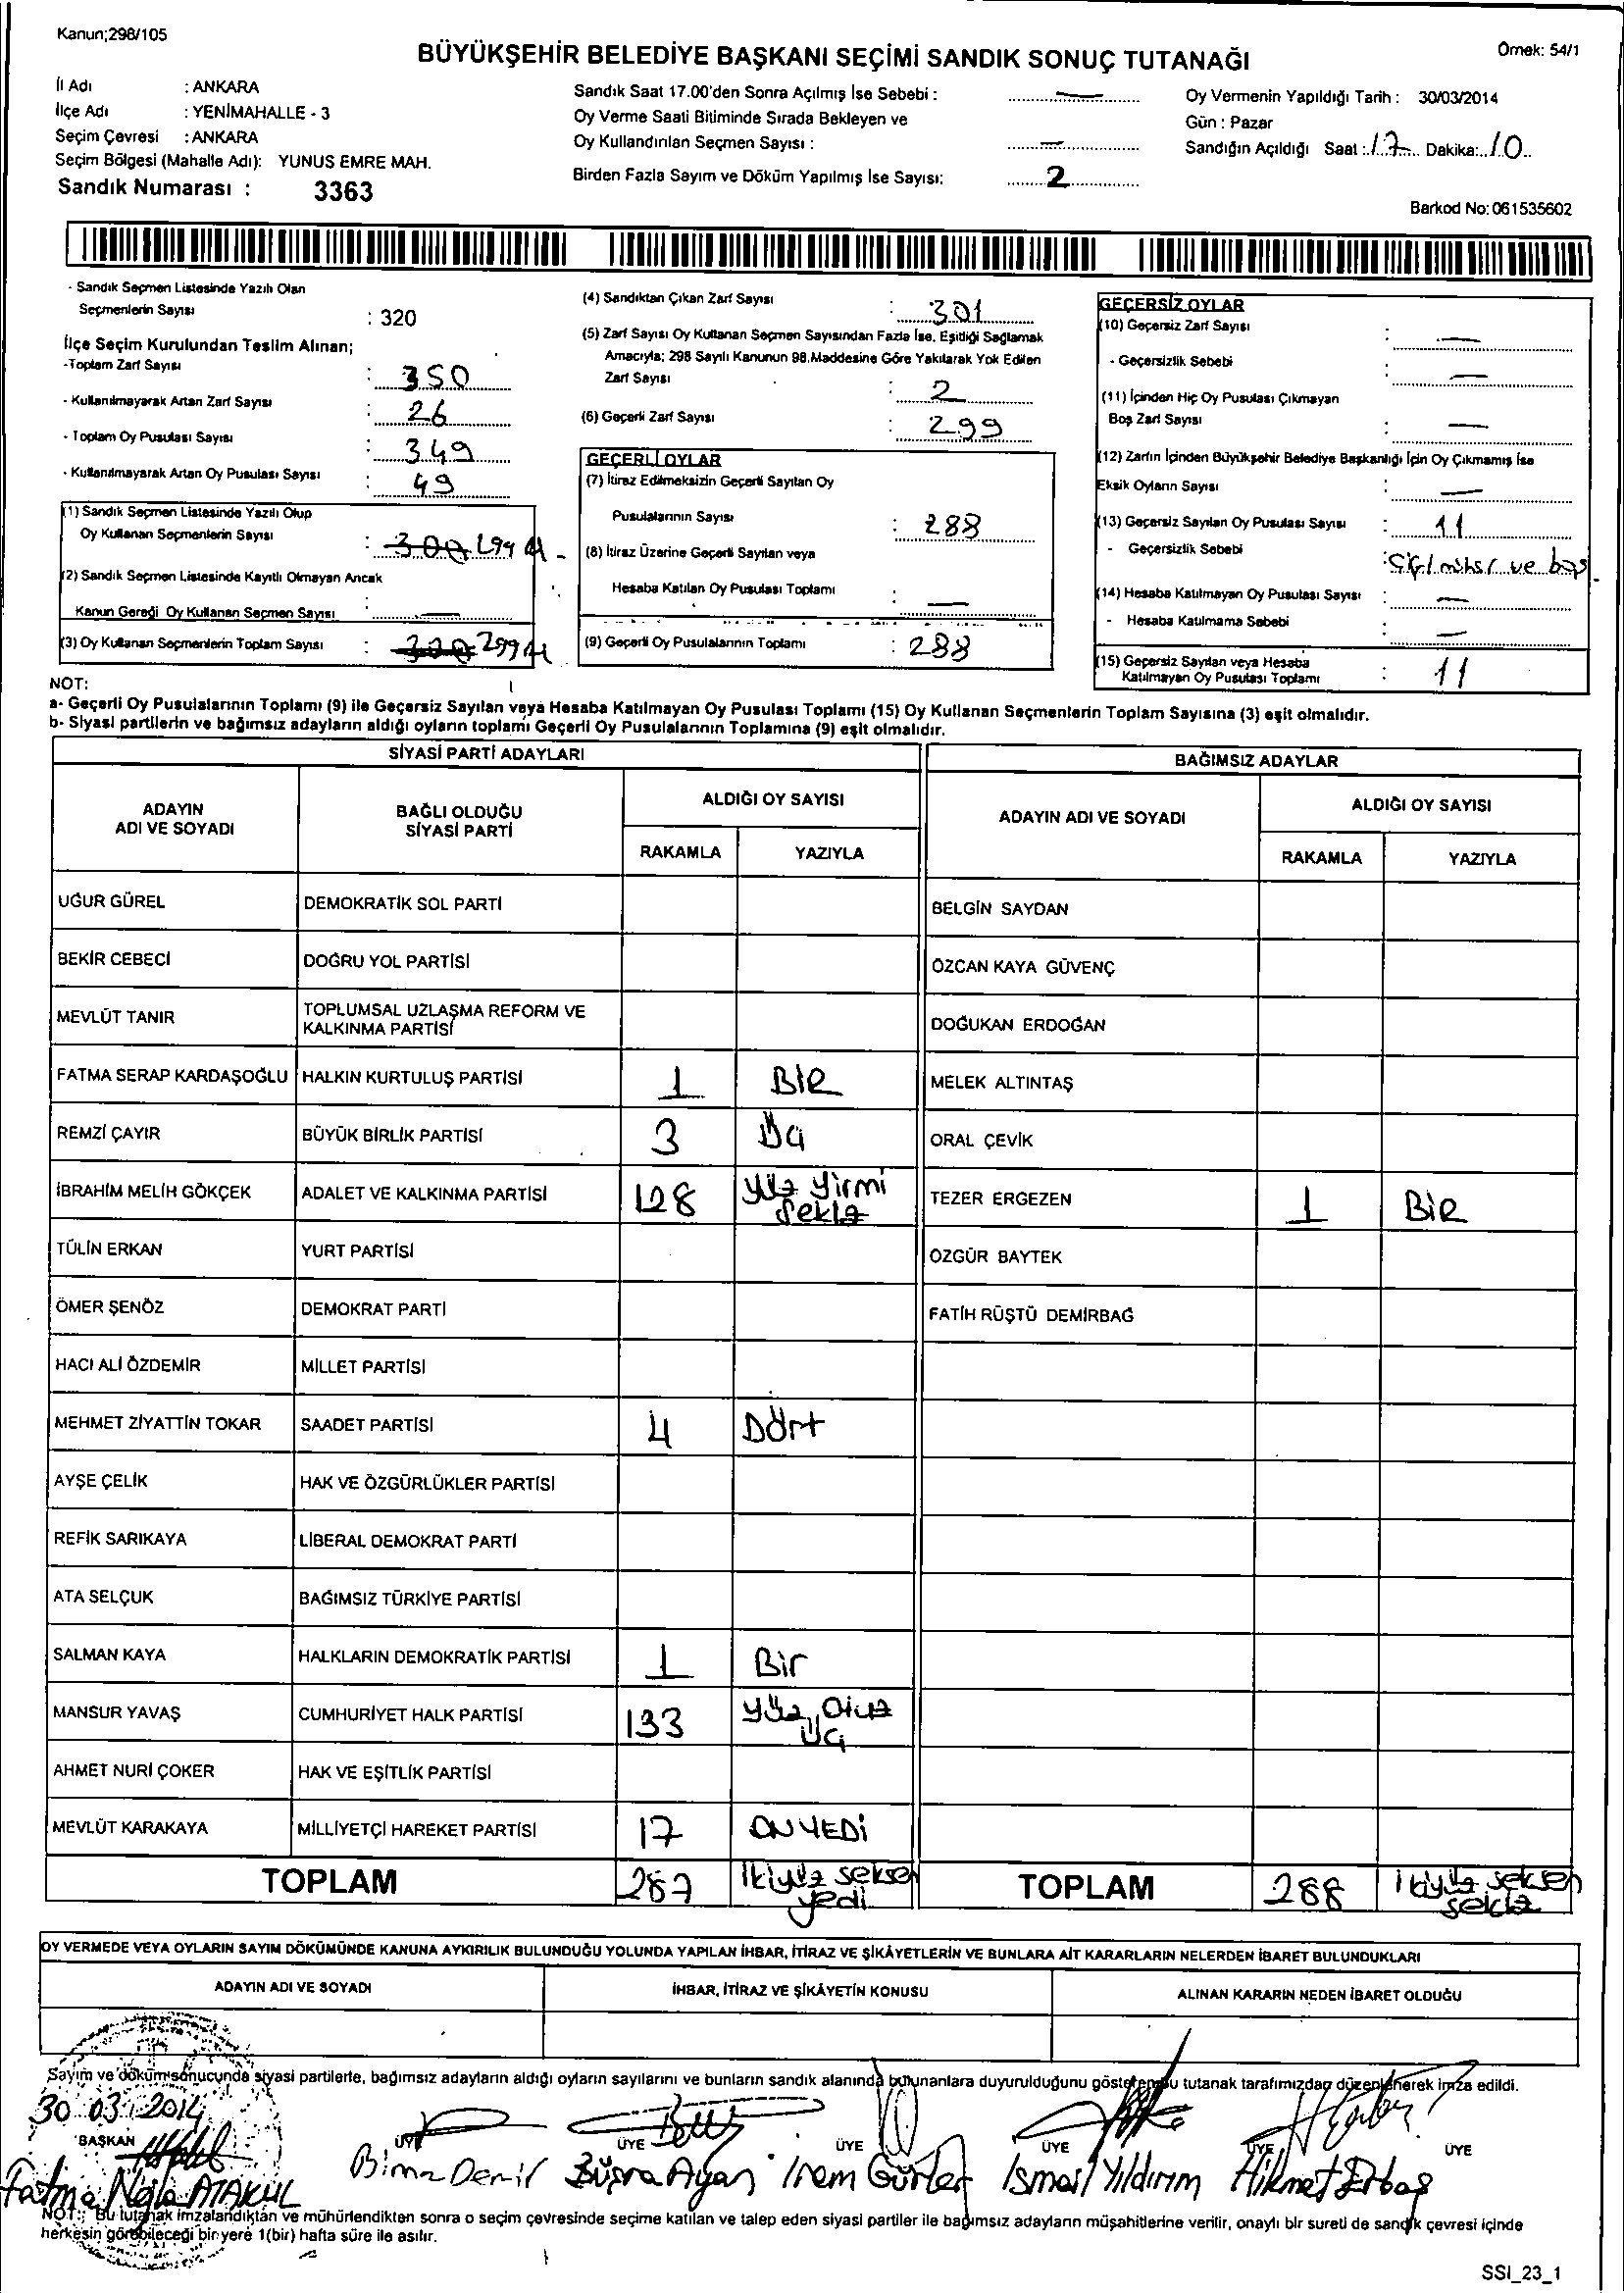 Kanun;298/105
Örnek: 54/1
BÜYÜKŞEHİR BELEDİYE BAŞKANI SEÇİMİ SANDIK SONUÇ TUTANAĞI
İl Adı : ANKARA
İlçe Adı : YENİMAHALLE - 3
Seçim Çevresi : ANKARA
Seçim Bölgesi (Mahalle Adı): YUNUS EMRE MAH.
Sandık Numarası : 3363
Sandık Saat 17.00'den Sonra Açılmış İse Sebebi : —
Oy Verme Saati Bitiminde Sırada Bekleyen ve
Oy Kullandırılan Seçmen Sayısı : —
Birden Fazla Sayım ve Döküm Yapılmış İse Sayısı: 2
Oy Vermenin Yapıldığı Tarih : 30/03/2014
Gün : Pazar
Sandığın Açıldığı Saat : 17 Dakika: 10
Barkod No: 061535602
- Sandık Seçmen Listesinde Yazılı Olan
Seçmenlerin Sayısı : 320
İlçe Seçim Kurulundan Teslim Alınan;
-Toplam Zarf Sayısı : 350
- Kullanılmayarak Artan Zarf Sayısı : 26
- Toplam Oy Pusulası Sayısı : 349
- Kullanılmayarak Artan Oy Pusulası Sayısı : 49
(1) Sandık Seçmen Listesinde Yazılı Olup
Oy Kullanan Seçmenlerin Sayısı : 300 299
(2) Sandık Seçmen Listesinde Kayıtlı Olmayan Ancak
Kanun Gereği Oy Kullanan Seçmen Sayısı : —
(3) Oy Kullanan Seçmenlerin Toplam Sayısı : 300 299
(4) Sandıktan Çıkan Zarf Sayısı : 301
(5) Zarf Sayısı Oy Kullanan Seçmen Sayısından Fazla İse, Eşitliği Sağlamak
Amacıyla; 298 Sayılı Kanunun 98.Maddesine Göre Yakılarak Yok Edilen
Zarf Sayısı : 2
(6) Geçerli Zarf Sayısı : 299
GEÇERLİ OYLAR
(7) İtiraz Edilmeksizin Geçerli Sayılan Oy
Pusulalarının Sayısı : 288
(8) İtiraz Üzerine Geçerli Sayılan veya
Hesaba Katılan Oy Pusulası Toplamı : —
(9) Geçerli Oy Pusulalarının Toplamı : 288
GEÇERSİZ OYLAR
(10) Geçersiz Zarf Sayısı : —
- Geçersizlik Sebebi : —
(11) İçinden Hiç Oy Pusulası Çıkmayan
Boş Zarf Sayısı : —
(12) Zarfın İçinden Büyükşehir Belediye Başkanlığı İçin Oy Çıkmamış İse
Eksik Oyların Sayısı : —
(13) Geçersiz Sayılan Oy Pusulası Sayısı : 11
- Geçersizlik Sebebi : ve boş
(14) Hesaba Katılmayan Oy Pusulası Sayısı : —
- Hesaba Katılmama Sebebi : —
(15) Geçersiz Sayılan veya Hesaba
Katılmayan Oy Pusulası Toplamı : 11
NOT:
a- Geçerli Oy Pusulalarının Toplamı (9) ile Geçersiz Sayılan veya Hesaba Katılmayan Oy Pusulası Toplamı (15) Oy Kullanan Seçmenlerin Toplam Sayısına (3) eşit olmalıdır.
b- Siyasi partilerin ve bağımsız adayların aldığı oyların toplamı Geçerli Oy Pusulalarının Toplamına (9) eşit olmalıdır.
SİYASİ PARTİ ADAYLARI
ADAYIN
ADI VE SOYADI
BAĞLI OLDUĞU
SİYASİ PARTİ
ALDIĞI OY SAYISI
RAKAMLA YAZIYLA
UĞUR GÜREL DEMOKRATİK SOL PARTİ
BEKİR CEBECİ DOĞRU YOL PARTİSİ
MEVLÜT TANIR TOPLUMSAL UZLAŞMA REFORM VE
KALKINMA PARTİSİ
FATMA SERAP KARDAŞOĞLU HALKIN KURTULUŞ PARTİSİ 1 BİR
REMZİ ÇAYIR BÜYÜK BİRLİK PARTİSİ 3 Üç
İBRAHİM MELİH GÖKÇEK ADALET VE KALKINMA PARTİSİ 128 Yüz Yirmi
Sekiz
TÜLİN ERKAN YURT PARTİSİ
ÖMER ŞENÖZ DEMOKRAT PARTİ
HACI ALİ ÖZDEMİR MİLLET PARTİSİ
MEHMET ZİYATTİN TOKAR SAADET PARTİSİ 4 Dört
AYŞE ÇELİK HAK VE ÖZGÜRLÜKLER PARTİSİ
REFİK SARIKAYA LİBERAL DEMOKRAT PARTİ
ATA SELÇUK BAĞIMSIZ TÜRKİYE PARTİSİ
SALMAN KAYA HALKLARIN DEMOKRATİK PARTİSİ 1 Bir
MANSUR YAVAŞ CUMHURİYET HALK PARTİSİ 133 Yüz Otuz
Üç
AHMET NURİ ÇOKER HAK VE EŞİTLİK PARTİSİ
MEVLÜT KARAKAYA MİLLİYETÇİ HAREKET PARTİSİ 17 ONYEDİ
TOPLAM 287 İkiyüz seksen
yedi
BAĞIMSIZ ADAYLAR
ADAYIN ADI VE SOYADI
ALDIĞI OY SAYISI
RAKAMLA YAZIYLA
BELGİN SAYDAN
ÖZCAN KAYA GÜVENÇ
DOĞUKAN ERDOĞAN
MELEK ALTINTAŞ
ORAL ÇEVİK
TEZER ERGEZEN 1 BİR
ÖZGÜR BAYTEK
FATİH RÜŞTÜ DEMİRBAĞ
TOPLAM 288 ikiyüz seksen
sekiz
OY VERMEDE VEYA OYLARIN SAYIM DÖKÜMÜNDE KANUNA AYKIRILIK BULUNDUĞU YOLUNDA YAPILAN İHBAR, İTİRAZ VE ŞİKÂYETLERİN VE BUNLARA AİT KARARLARIN NELERDEN İBARET BULUNDUKLARI
ADAYIN ADI VE SOYADI İHBAR, İTİRAZ VE ŞİKÂYETİN KONUSU ALINAN KARARIN NEDEN İBARET OLDUĞU
Sayım ve döküm sonucunda siyasi partilerle, bağımsız adayların aldığı oyların sayılarını ve bunların sandık alanında bulunanlara duyurulduğunu gösteren bu tutanak tarafımızdan düzenlenerek imza edildi.
30 03 2014
BAŞKAN ÜYE ÜYE ÜYE ÜYE ÜYE ÜYE
Fatma Nejla ATAKUL Birna Demir Büşra Ayan İrem Gürler İsmail Yıldırım Hikmet Erbaş
NOT: Bu tutanak imzalandıktan ve mühürlendikten sonra o seçim çevresinde seçime katılan ve talep eden siyasi partiler ile bağımsız adayların müşahitlerine verilir, onaylı bir sureti de sandık çevresi içinde
herkesin görebileceği bir yere 1(bir) hafta süre ile asılır.
SSI_23_1